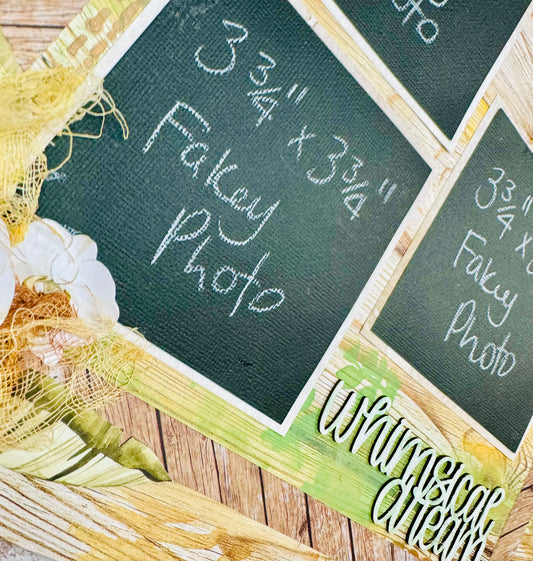 oto
3 3/4" x 3 3/4"
Fakey
Photo
3 3/4" x
Fakey
Photo
whimsical
dream